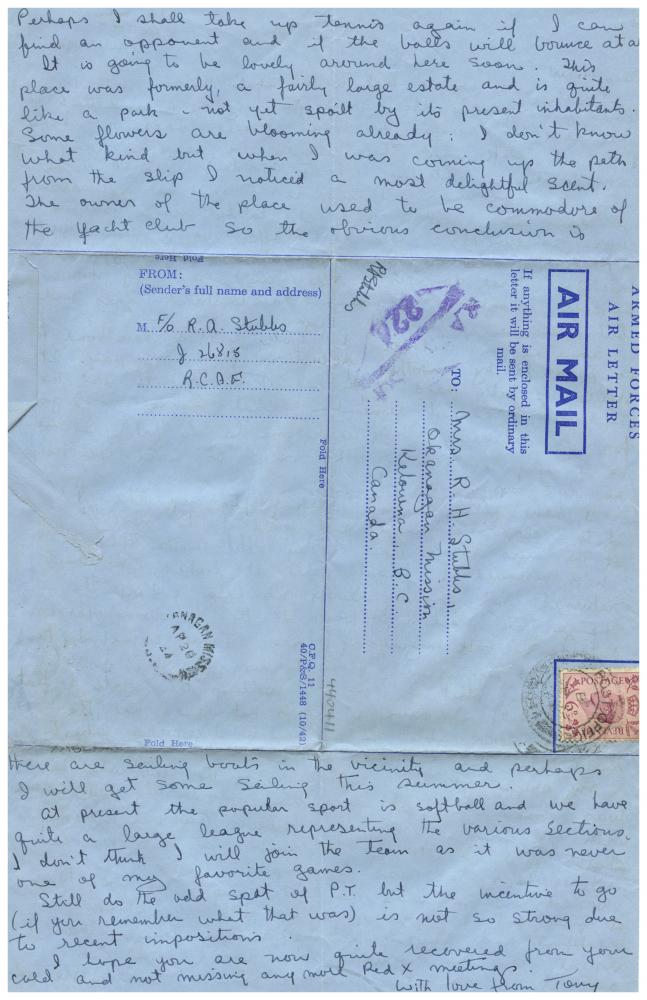 Perhaps I shall take up tennis again if I can
find an opponent and if the balls will bounce at a
It is going to be lovely around here soon. This
place was formerly, a fairly large estate and is quite
like a park - not yet spoilt by its present inhabitants.
Some flowers are blooming already; I don't know
what kind but when I was coming up the path
from the slip I noticed a most delightful scent.
The owner of the place used to be commodore of
the yacht club so the obvious conclusion is
Fold Here
FROM:
(Sender's full name and address)
M. F/O. R.A. Stubbs
J 26818
R.C.A.F.
Fold Here
ARMED FORCES
AIR LETTER
AIR MAIL
If anything is enclosed in this
letter it will be sent by ordinary
mail.
RAStubbs
220
TO:
Mrs. R. H. Stubbs,
Okanagan Mission
Kelowna B.C.
Canada.
ANAGAN MISS
AP 20
44
C.F.Q. 11
40/P&S/1448 (10/42)
440411
POSTAGE
REVENUE
Fold Here
there are sailing boats in the vicinity and perhaps
I will get some sailing this summer.
At present the popular sport is softball and we have
quite a large league representing the various sections.
I don't think I will join the team as it was never
one of my favorite games.
Still do the odd spot of P.T. but the incentive to go
(if you remember what that was) is not so strong due
to recent impositions.
I hope you are now quite recovered from your
cold and not missing any more Red X meetings.
With love from Tony